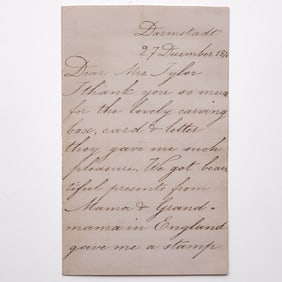 Darmstadt
27 December
Dear Mrs. Tylor
I thank you so much
for the lovely carving
box, card & letter
they gave me such
pleasure. We got beau
tiful presents from
Mama & Grand-
mama in England
gave me a stamp